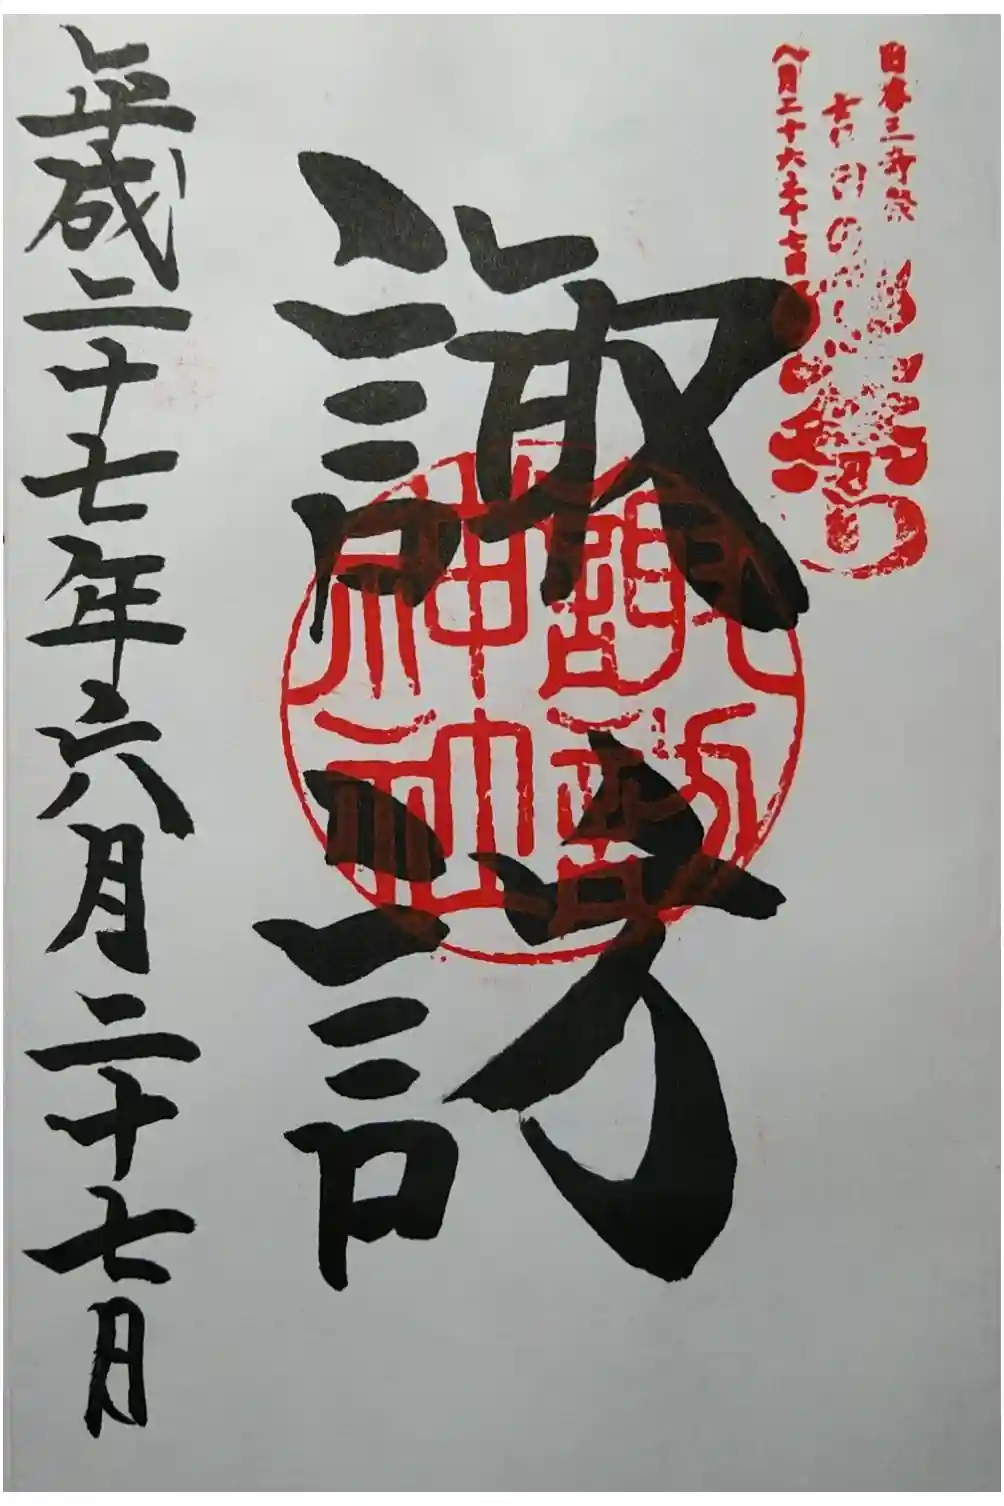 日本三奇祭
吉田の火祭り
八月二十六二十七日
諏訪
諏訪
神社
平成二十七年六月二十七月